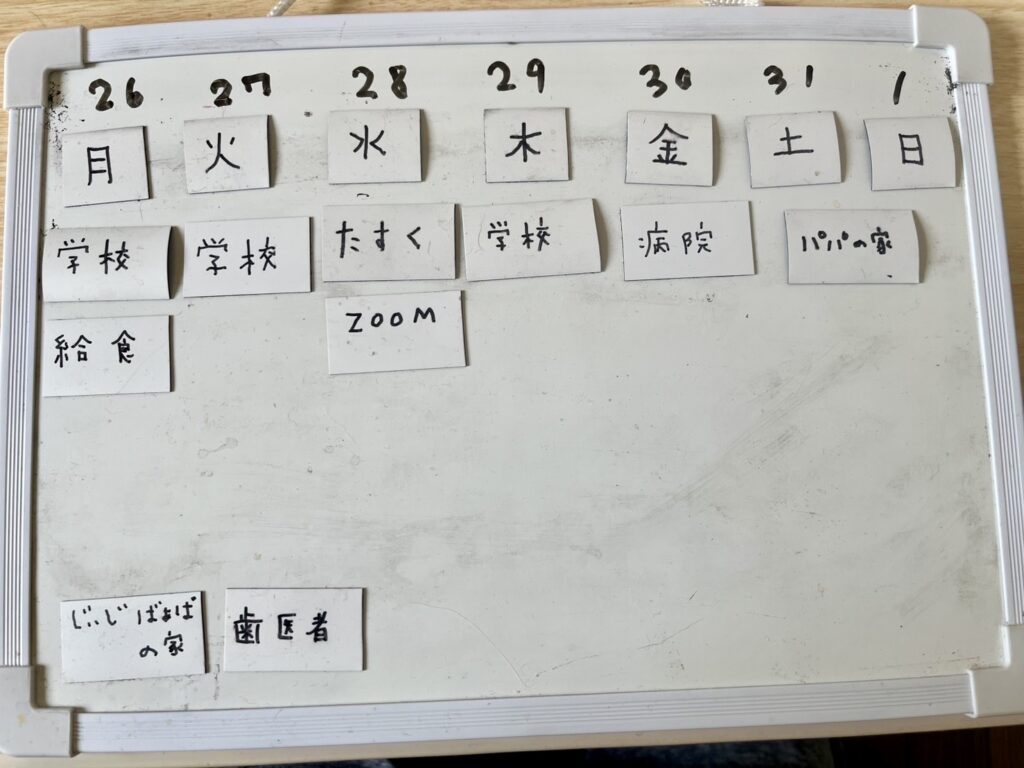 26 27 28 29 30 31 1
月 火 水 木 金 土 日
学校 学校 たすく 学校 病院 パパの家
給食 ZOOM
じいじばぁば
の家
歯医者